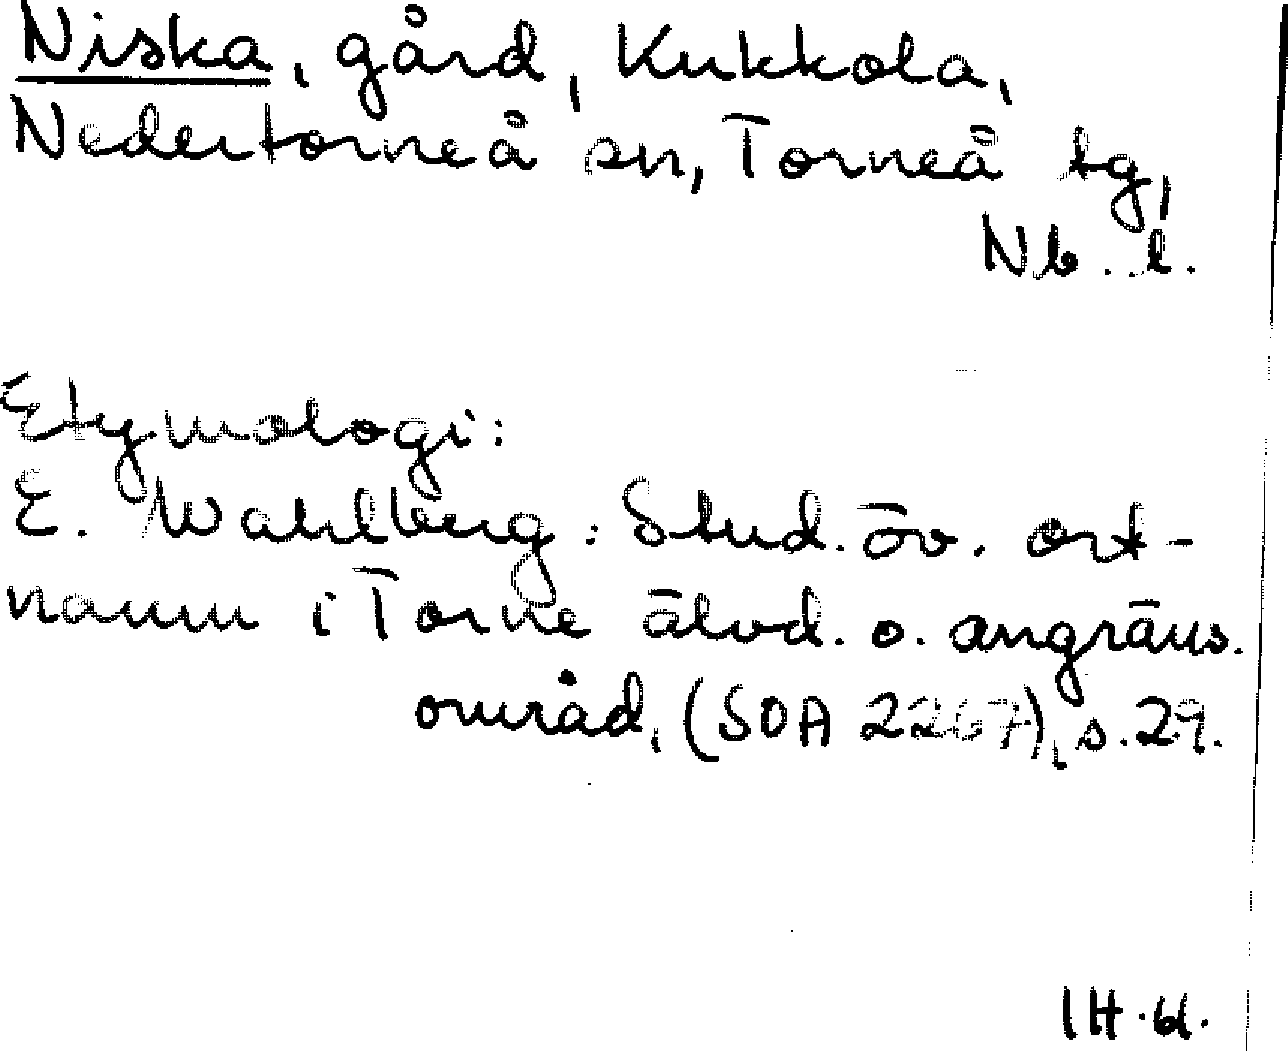 Niska, gård, Kukkola,
Nedertorneå sn, Torneå tg,
Nb. l.
Etymologi:
E. Wahlberg: Stud. öv. ort-
namn i Torne älvd. o. angräns.
områd, (SOA 2267), s. 29.
IH. 61.